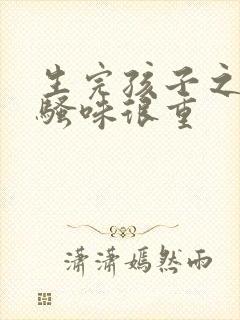 生完孩子之
骚味很重
潇潇嫣然雨